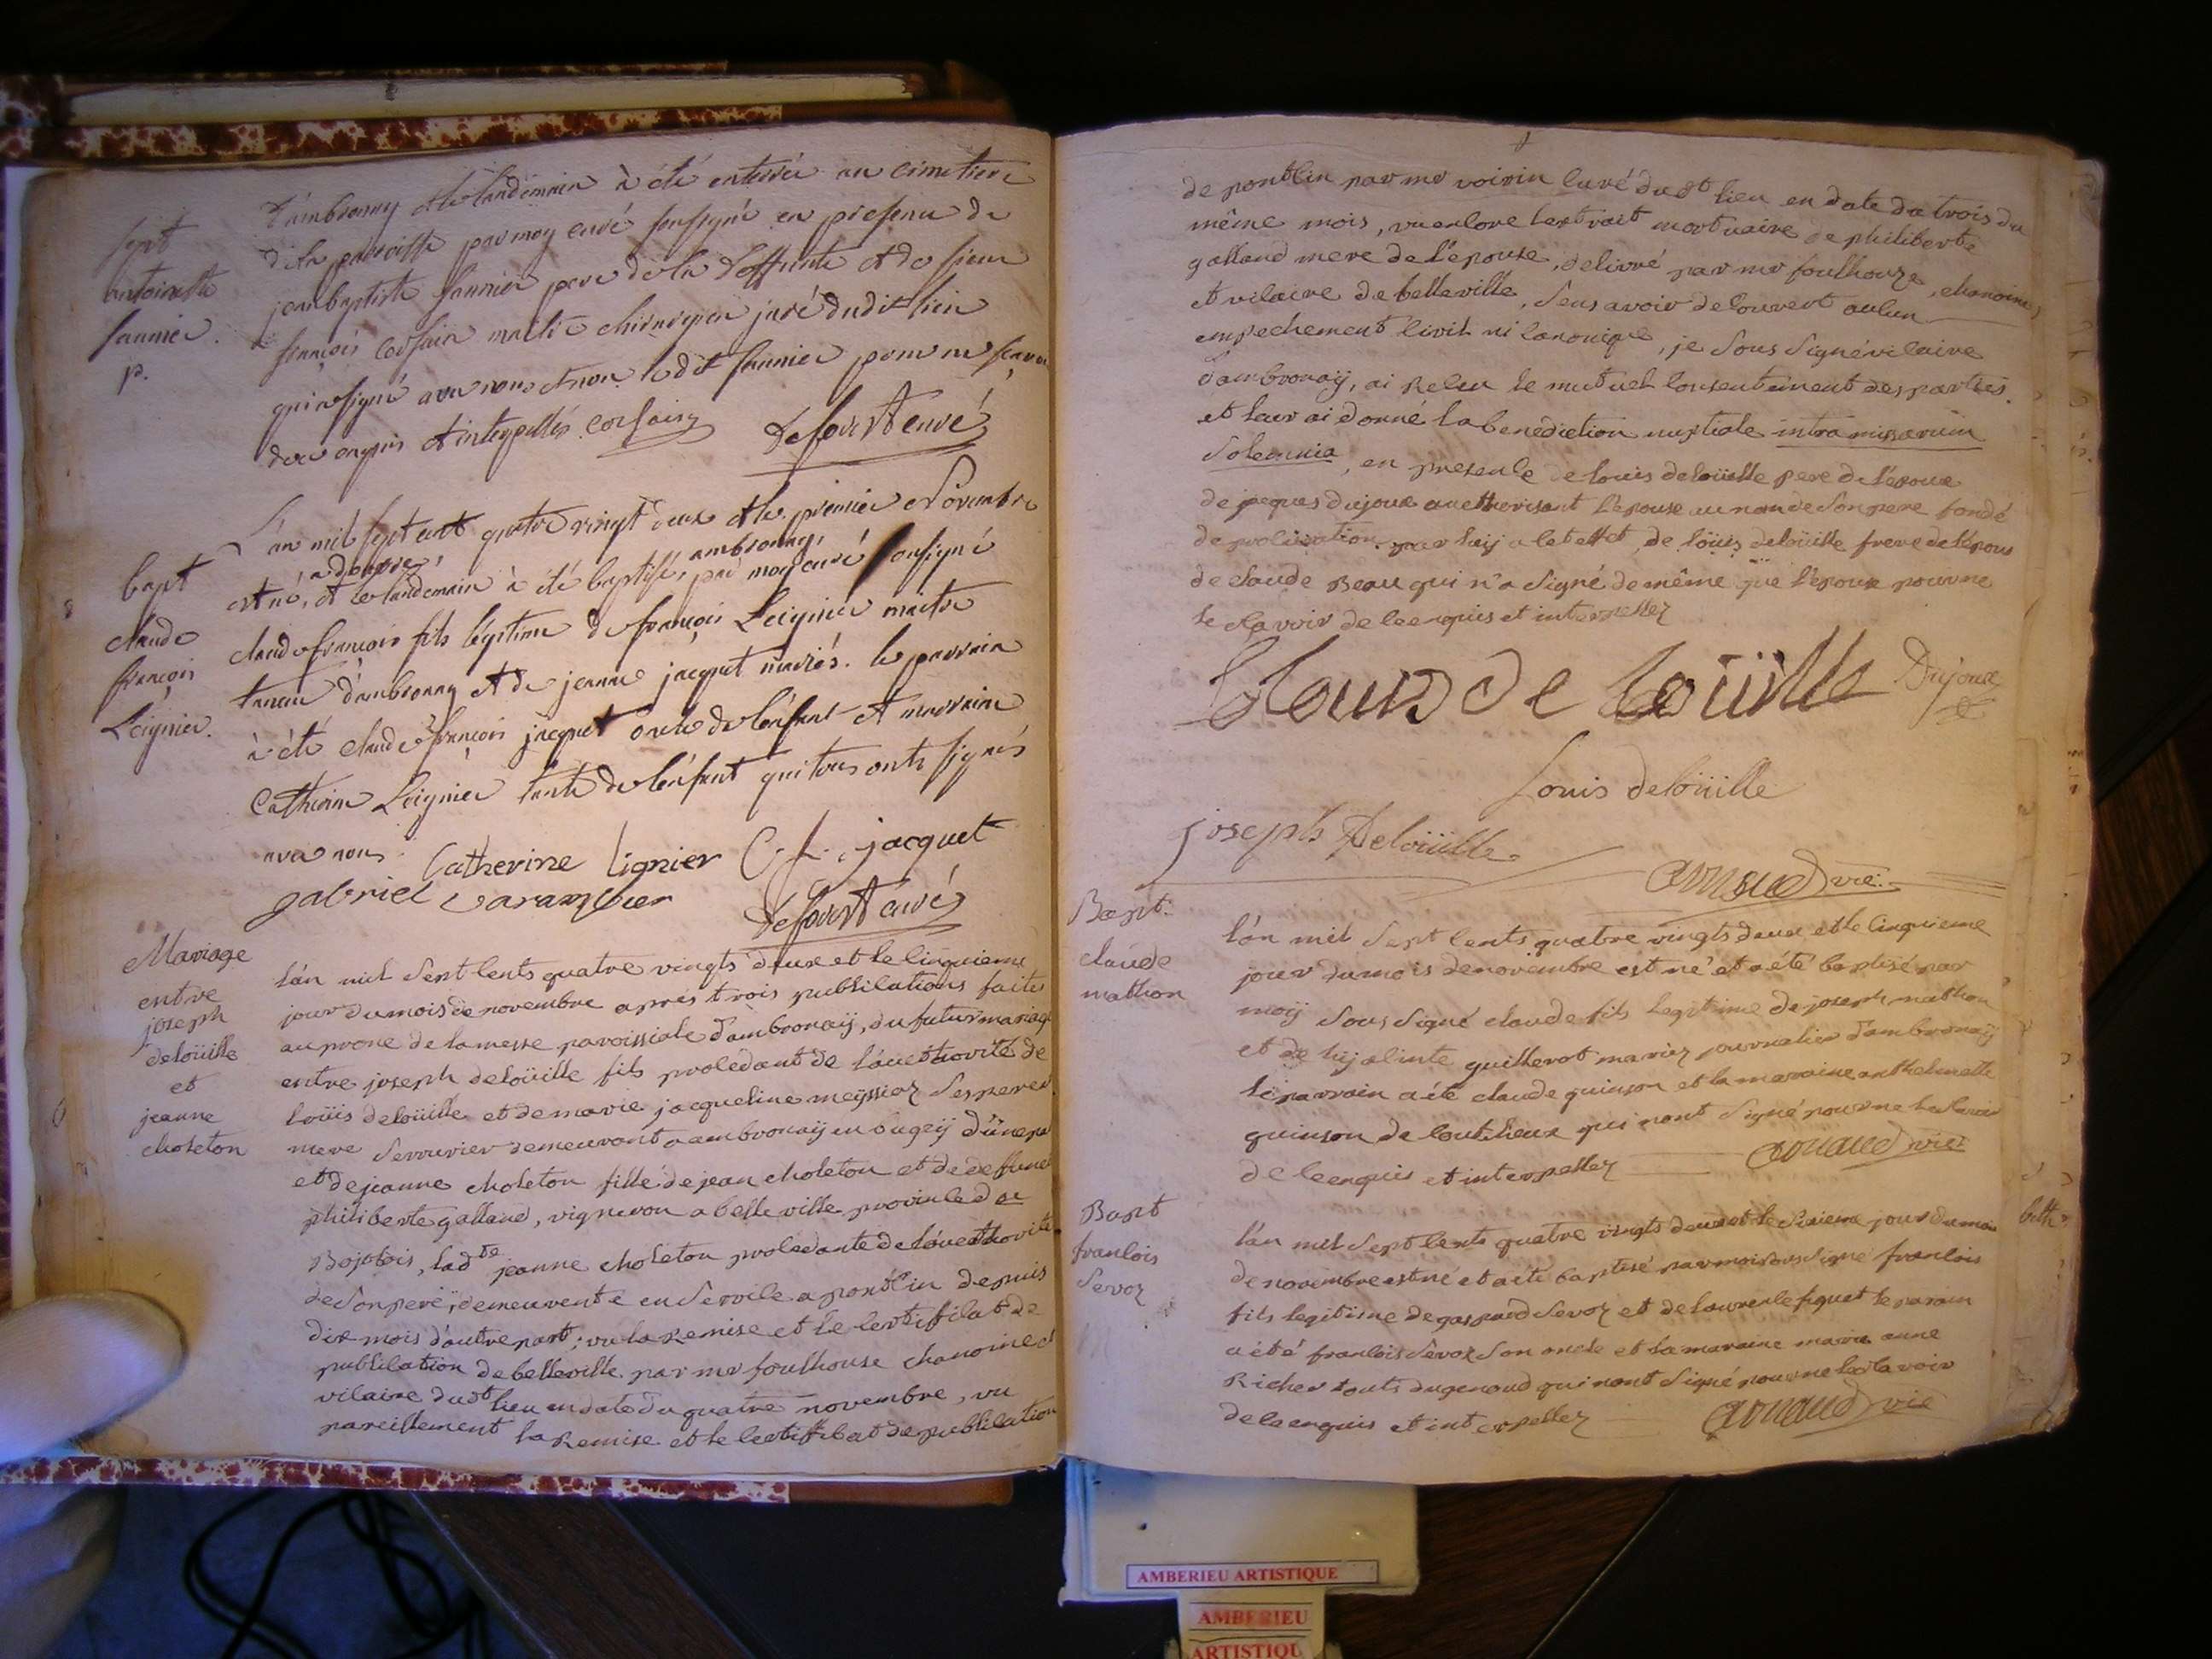 d'ambronay et le landemain à été enterrée au cimetiere
de la paroisse par moy curé soussigné en presence de
jean baptiste saunier pere de la deffunte et de sieur
françois corsain maitre chirurgien juré dudit lieu
qui a signé avec nous et non le dit saunier pour ne scavoir
de ce enquis et interpellés. corsain Defourt curé
sept
antoinette
saunier.
p.
L'an mil sept cent quatre vingt deux et le premier Novembre
a douvre, ambronay,
est né, et le landemain à été baptisé, par moy curé sousigné
claude françois fils légitime de françois Leignier maitre
taneur d'ambronay et de jeanne jacquet mariés. le parrain
à été claude françois jacquet oncle de l'enfant et marraine
Catherine Leignier tante de l'enfant qui tous onts signés
avec nous. Catherine lignier C. f. jacquet
gabriel Defourt curé
bapt
claude
françois
Leignier.
Mariage
entre
joseph
deloüille
et
jeanne
choleton
l'an mil sept cents quatre vingts deux et le cinquieme
jour du mois de novembre aprés trois publications faites
au prone de la messe paroissiale d'ambronaÿ, du futur mariage
entre joseph deloüille fils procédant de l'auethorité de
loüis deloüille et de marie jacqueline meyssioz ses pere
mere serrurier demeurant a ambronaÿ en bugeÿ d'une part
et de jeanne choleton fille de jean choleton et de deffunte
philiberte galland, vigneron a belleville province de
Bojolois, lad.te jeanne choleton procedante de l'auethorité
de son pere, demeurente en service a pontlin depuis
dix mois d'autre part; vu la remise et le certificat de
publication de belleville par mr foulhouse chanoine et
vicaire dudt lieu en date du quatre novembre, vu
pareillement la remise et le certifficat de publication
de pontlin par mr voisin curé dudt lieu en date du trois du
même mois, vu encore l'extrait mortuaire de philiberte
galland mere de l'epouse, delivré par mr foulhouze, chanoine
et vicaire de belleville, sans avoir decouvert aucun
empechement civil ni canonique, je sous signé vicaire
d'ambronaÿ, ai recu le mutuel consentement des parties.
et leur ai donné la benediction nuptiale intra missarum
solemnia, en presence de louis deloüille pere de l'epoux
de jacques dujoux auethorisant l'epouse au nom de son pere fondé
de procuration par luÿ a cet effet, de loüis deloüille frere de l'epoux
de claude Beau qui n'a signé de même que l'epouse pour ne
le sçavoir de ce enquis et interpellez
Louis De loüille Dujoux
Louis deloüille
joseph Deloüille
arnaud vic.
Bapt.
claude
mathon
l'an mil sept cents quatre vingts deux et le cinquieme
jour du mois de novembre est né et a été baptisé par
moÿ sous signé claude fils legitime de joseph mathon
et de hyacinte guillerot mariez journalier d'ambronaÿ
le parrain a été claude quinson et la marraine anthelmette
quinson de coutelieux qui n'ont signé pour ne le sçavoir
de ce enquis et interpellez arnaud vic
Bapt
francois
Sevoz
l'an mil sept cents quatre vingts deux et le sixieme jour du mois
de novembre est né et a été baptisé par moi sous signé francois
fils legitime de gaspard sevoz et de laurence piquet le parain
a été francois sevoz son oncle et la maraine marie anne
Richer touts dugenoud qui n'ont signé pour ne le sçavoir
de ce enquis et interpellez arnaud vic
AMBERIEU ARTISTIQUE
AMBERIEU
ARTISTIQU